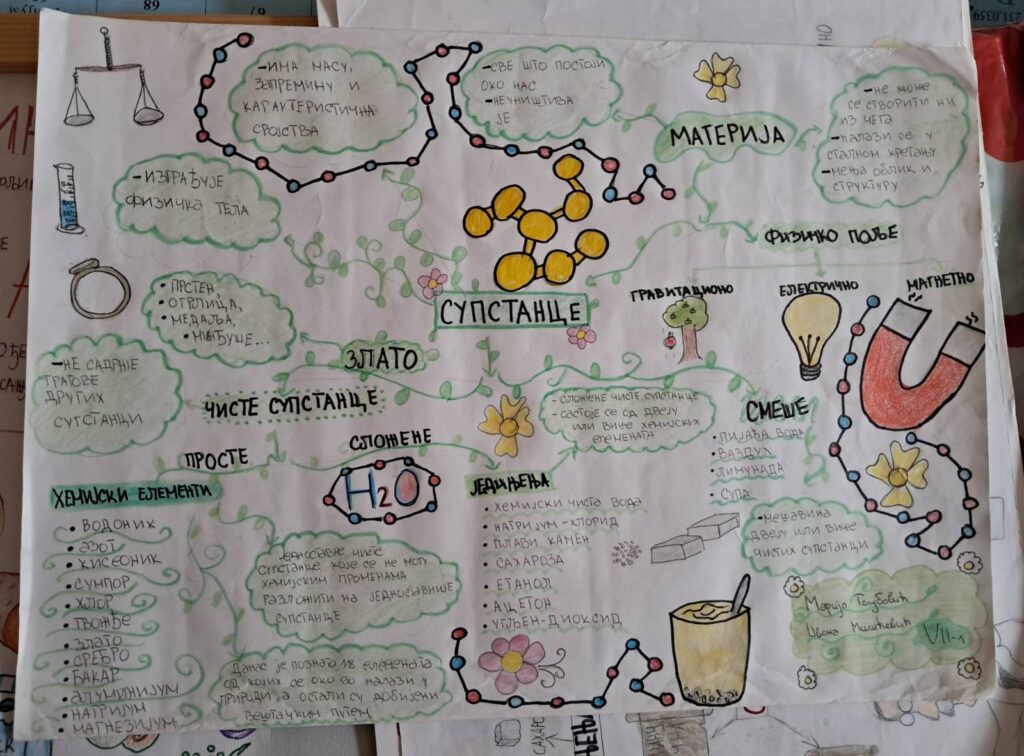 -ИМА МАСУ,
ЗАПРЕМИНУ И
КАРАКТЕРИСТИЧНА
СВОЈСТВА
-СВЕ ШТО ПОСТОЈИ
ОКО НАС
-НЕУНИШТИВА
ЈЕ
МАТЕРИЈА
-НЕ МОЖЕ
СЕ СТВОРИТИ НИ
ИЗ ЧЕГА
-НАЛАЗИ СЕ У
СТАЛНОМ КРЕТАЊУ
-МЕЊА ОБЛИК И
СТРУКТУРУ
-ИЗГРАЂУЈЕ
ФИЗИЧКА ТЕЛА
ФИЗИЧКО ПОЉЕ
ГРАВИТАЦИОНО
ЕЛЕКТРИЧНО
МАГНЕТНО
СУПСТАНЦЕ
• ПРСТЕН
• ОГРЛИЦА,
• МЕДАЉА,
• МИНЂУШЕ...
ЗЛАТО
-НЕ САДРЖЕ
ТРАГОВЕ
ДРУГИХ
СУПСТАНЦИ
ЧИСТЕ СУПСТАНЦЕ
- СЛОЖЕНЕ ЧИСТЕ СУПСТАНЦЕ
- САСТОЈЕ СЕ ОД ДВЕЈУ
ИЛИ ВИШЕ ХЕМИЈСКИХ
ЕЛЕМЕНАТА
СМЕШЕ
• ПИЈАЋА ВОДА
• ВАЗДУХ
• ЛИМУНАДА
• СУПА...
ПРОСТЕ
СЛОЖЕНЕ
H2O
ХЕМИЈСКИ ЕЛЕМЕНТИ
• ВОДОНИК
• АЗОТ
• КИСЕОНИК
• СУМПОР
• ХЛОР
• ГВОЖЂЕ
• ЗЛАТО
• СРЕБРО
• БАКАР
• АЛУМИНИЈУМ
• НАТРИЈУМ
• МАГНЕЗИЈУМ
ЈЕДНОСТАВНЕ ЧИСТЕ
СУПСТАНЦЕ КОЈЕ СЕ НЕ МОГУ
ХЕМИЈСКИМ ПРОМЕНАМА
РАЗЛОЖИТИ НА ЈЕДНОСТАВНИЈЕ
СУПСТАНЦЕ
ДАНАС ЈЕ ПОЗНАТО 118 ЕЛЕМЕНАТА
ОД КОЈИХ СЕ ОКО 80 НАЛАЗИ У
ПРИРОДИ, А ОСТАЛИ СУ ДОБИЈЕНИ
ВЕШТАЧКИМ ПУТЕМ
ЈЕДИЊЕЊА
• ХЕМИЈСКИ ЧИСТА ВОДА
• НАТРИЈУМ-ХЛОРИД
• ПЛАВИ КАМЕН
• САХАРОЗА
• ЕТАНОЛ
• АЦЕТОН
• УГЉЕН-ДИОКСИД
-МЕШАВИНА
ДВЕЈУ ИЛИ ВИШЕ
ЧИСТИХ СУПСТАНЦИ
Марија Голубовић
Ивона Милићевић
VII-1